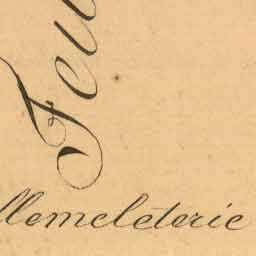 Feu
llemeleterie